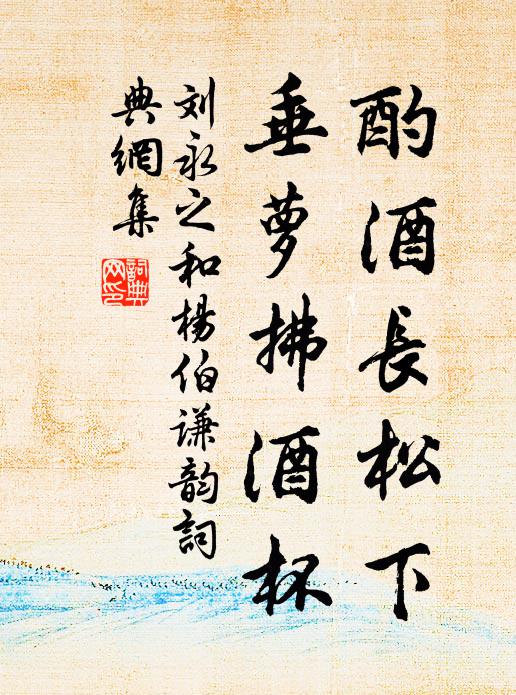 酌酒長松下
垂萝拂酒杯
刘永之和楊伯谦韵詞
典網集
詞典
网印